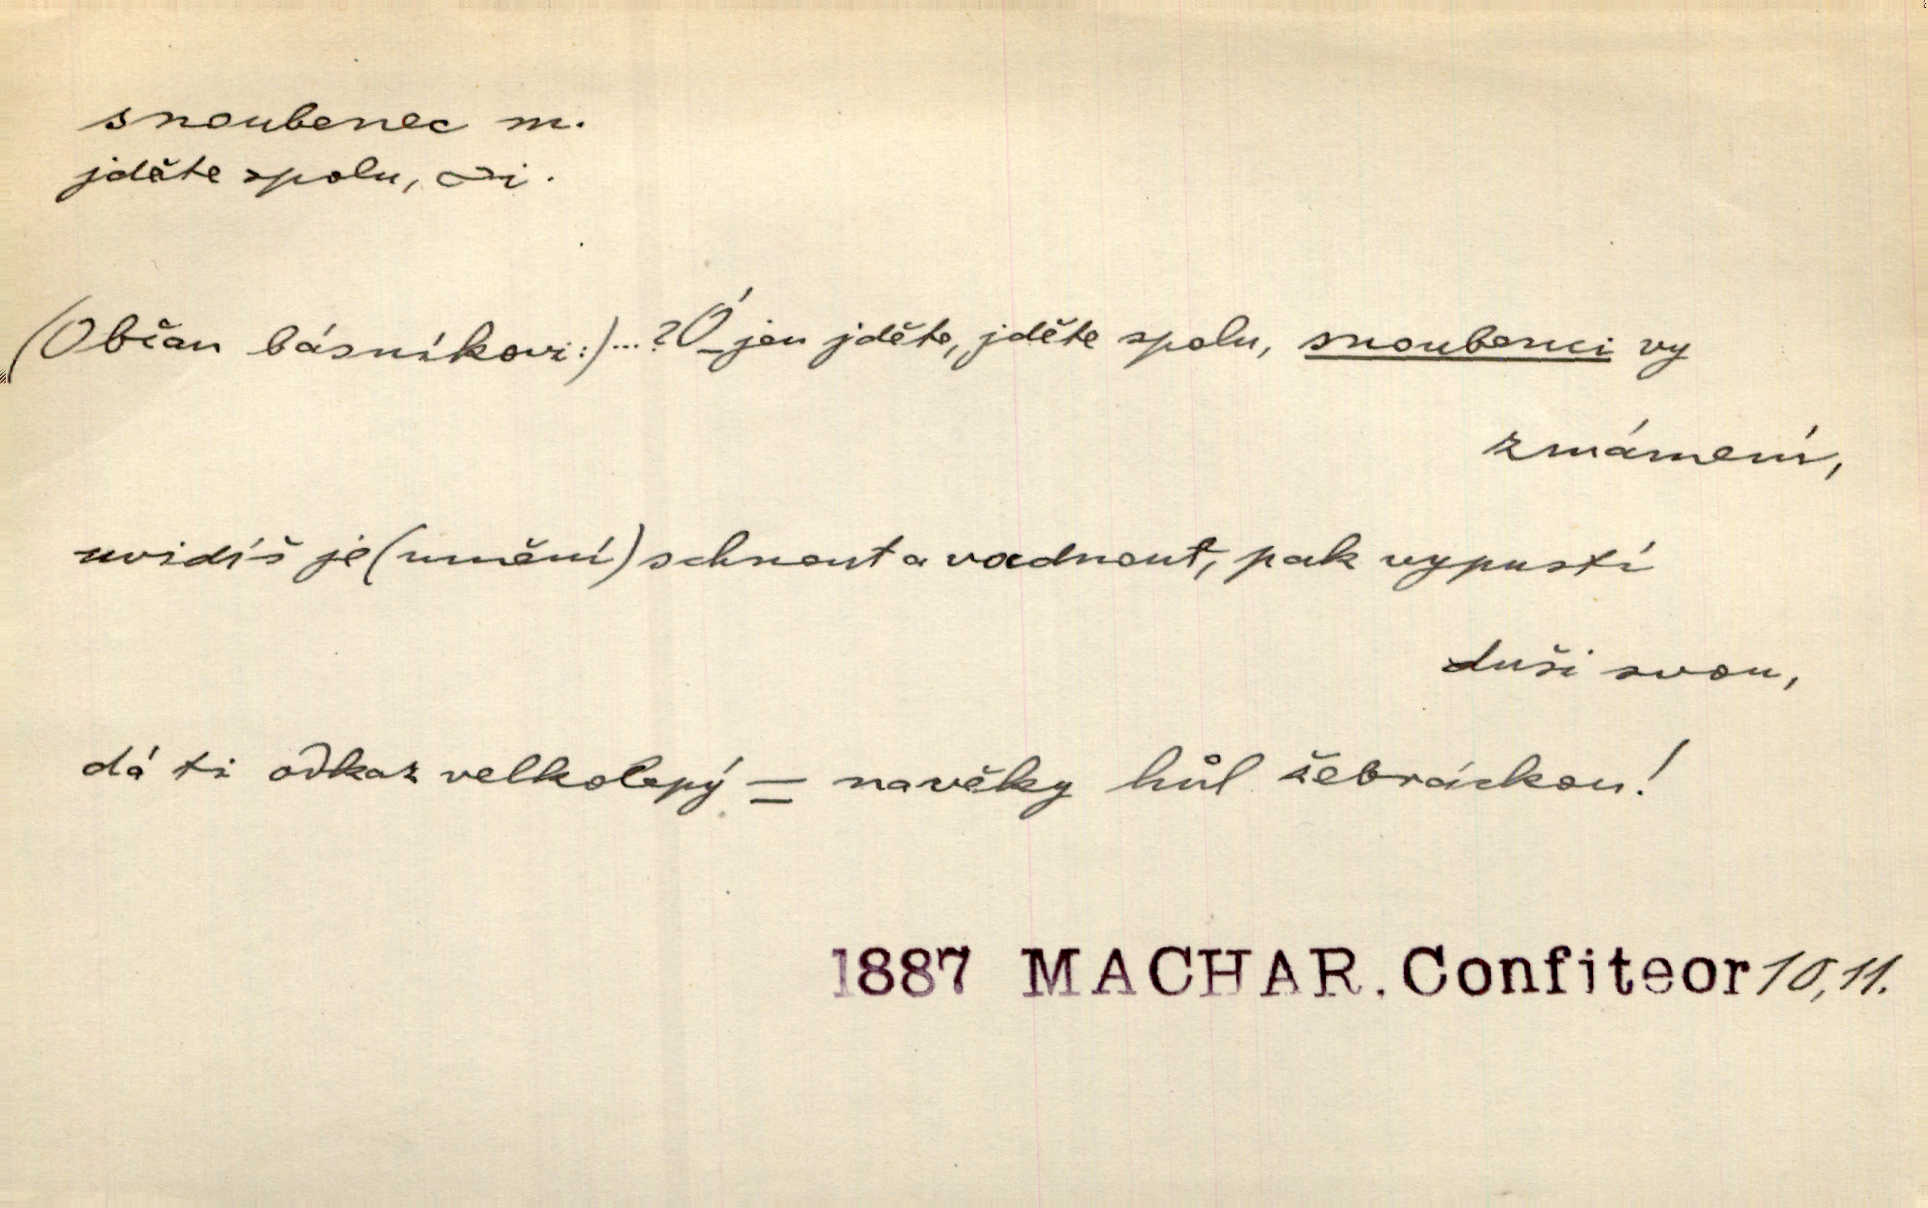 snoubenec m.
jděte spolu, ~i.
(Občan básníkovi:)...? Ó jen jděte, jděte spolu, snoubenci vy
zmámení,
uvidíš je (umění) schnout a vadnout, pak vypustí
duši svou,
dá ti odkaz velkolepý = navěky hůl žebráckou!
1887 MACHAR. Confiteor 10, 11.